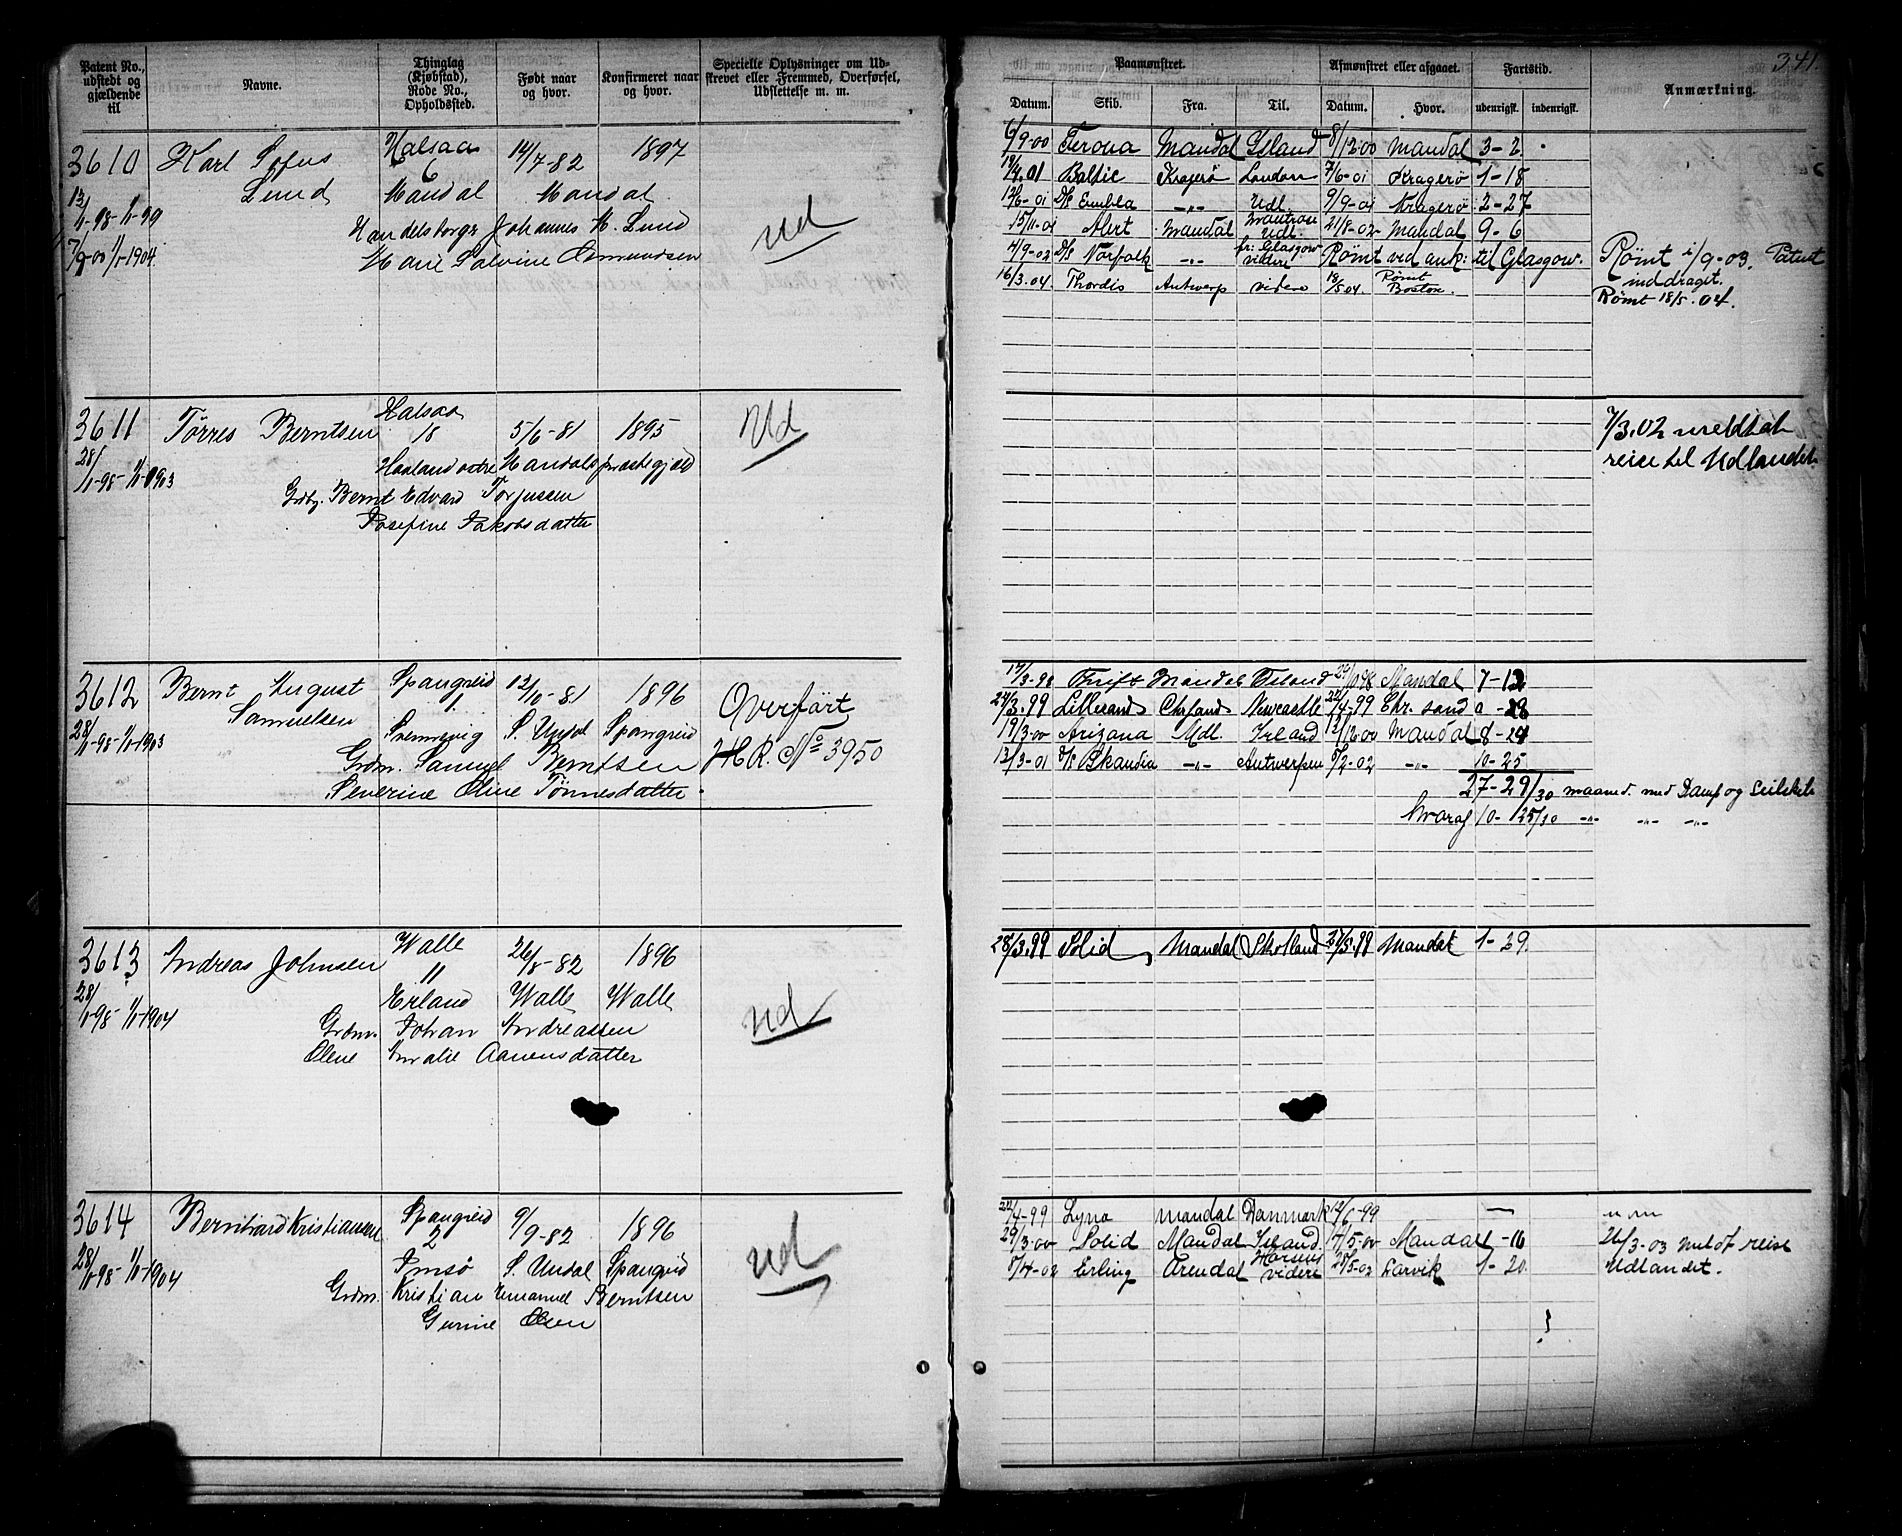 341.
Patent No., udstedt og gjældende til
Navne.
Thinglag (Kjøbstad), Rode No., Opholdssted.
Født naar og hvor.
Konfirmeret naar og hvor.
Specielle Oplysninger om Udskrevet eller Fremmed, Overførsel, Udslettelse m. m.
Paamønstret.
Afmønstret eller afgaaet.
Fartstid.
Anmærkning.
Datum. Skib. Fra. Til. Datum. Hvor. udenrigsk. indenrigsk.
3610 Karl Sofus Halsaa 14/7-82 1897
Lund 6
Mandal Mandal
13/1-98-1/1-99
7/9-00 1/1-1904
Handelsborger Johannes M. Lund
Marie Salvine Osmundsen
Ud
6/9-00 Verona Mandal Island 8/12-00 Mandal 3-2
Baltic Kragerø London 7/6-01 Kragerø 1-18
12/6-01 D/S Embla -"- Udl. 9/9-01 Kragerø 2-27
15/11-01 Alert Mandal Montrose Udl. 21/8-02 Mandal 9-6
4/9-02 D/S Norfolk -"- fr: Glasgow videre Rømt ved ank: til Glasgow.
16/3.04. Thordis Antwerp videre 18/5 04. Rømt Boston.
Rømt 1/9-03. Patent
inddraget.
Rømt 18/5.04.
3611 Tørres Berntsen Halsaa 5/6-81 1895
18
28/1-98-1/1-1903
Haaland østre Mandals præstegjæld
Grdbr. Bernt Edvard Torjussen
Josefine Jakobsdatter
Ud
7/3.02 meldt at
reise til Udlandet.
3612 Bernt August Spangreid 12/10-81 1896
Samuelsen
28/1-98-1/1-1903
Svennevig S. Undal Spangreid
Grdm. Samuel Berntsen
Severine Oline Tønnesdatter.
Overført
H.R. No 3950
17/3-98 Drift Mandal Island Mandal 7-12
24/3.99 Lillesand Chrsand Newcastle 22/4-99 Chr.sand 0-28
19/3-00 Arizona Udl. Irland 12/12-00 Mandal 8-24
13/3-01 D/S Skandia -"- Antwerpen 8/2-02 -"- 10-25
27-29/30 maaned. med Damp og Seilskib
hvoraf 10-25/30 -"- -"- -"-
3613 Andreas Johnsen Walle 26/8-82 1896
11
28/1-98-1/1-1904
Erland Walle Walle
Grdm. Johan Andreassen
Olene Amalie Aanensdatter
Ud
28/3.99 Solid Mandal Skotland 27/5.99 Mandal 1-29.
3614 Bernhard Kristiansen Spangreid 9/9-82 1896
2
28/1-98-1/1-1904
Imsø S. Undal Spangreid
Grdm. Kristian Emanuel Berntsen
Gurine Olsen
Ud
22/4-99 Lyna Mandal Danmark 12/6-99 —
29/3-00 Solid Mandal Island 17/5-00 Mandal 1-16
8/4-02 Erling Arendal Horsens videre 28/5-02 Larvik 1-20.
26/3-03 meldt reise
Udlandet.